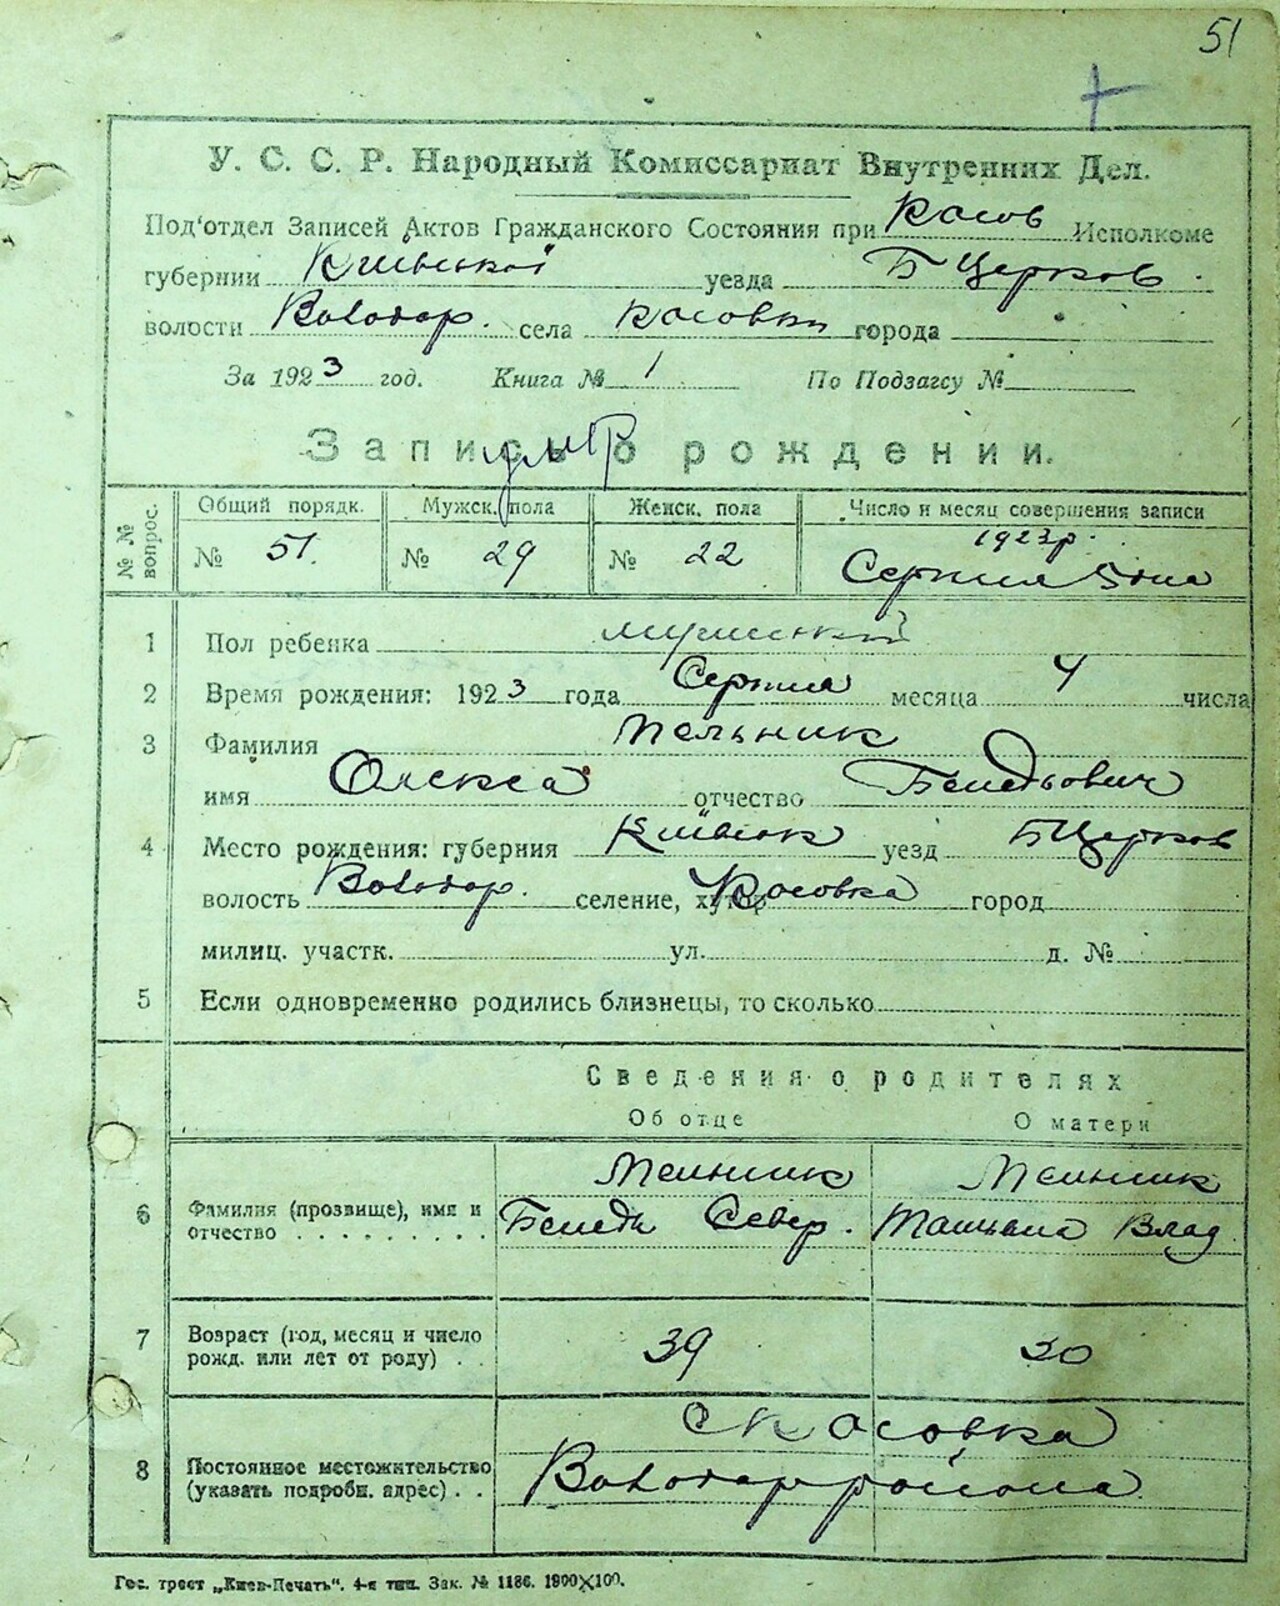 51
У. С. С. Р. Народный Комиссариат Внутренних Дел.
Под'отдел Записей Актов Гражданского Состояния при Косов Исполкоме
губернии Київської уезда Б Церков.
волости Володар. села Косовки города
За 1923 год. Книга № 1 По Подзагсу №
Запись о рождении.
умр
№№ вопрос. Общий порядк. Мужск. пола Женск. пола Число и месяц совершения записи
№ 51. № 29 № 22 1923р. Серпня 5 дня
1 Пол ребенка
2 Время рождения: 1923 года Серпня месяца 4 числа
3 Фамилия Мельник
имя Олекса отчество Бенедьович
4 Место рождения: губерния Київськ уезд Б Церков
волость Володар. селение, хутор Косовка город
милиц. участк. ул. д. №
5 Если одновременно родились близнецы, то сколько
Сведения о родителях
Об отце О матери
Мельник Мельник
6 Фамилия (прозвище), имя и отчество Бенедь Север. Татьяна Влад.
7 Возраст (год, месяц и число рожд. или лет от роду) 39 30
с Косовка
8 Постоянное местожительство (указать подробн. адрес) Володаррайона
Гос. трест „Киев-Печать“. 4-я тип. Зак. № 1186. 1900×100.